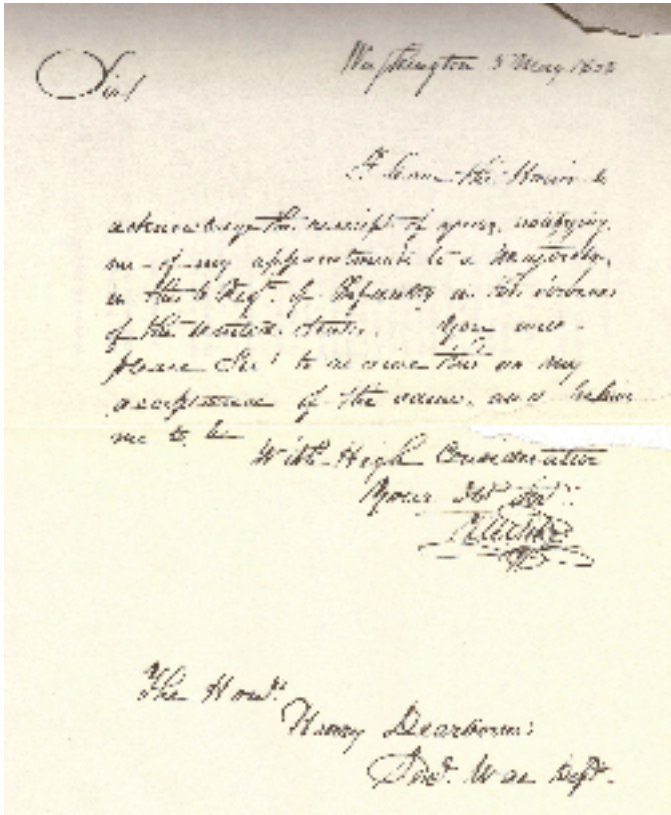 Sir!
Washington 5 May 1808
I have the Honour to
acknowledge the receipt of yours, notifying
me of my appointment to a Majority
in the 6 Regt. of Infantry in the
of the United States. You will
please Sir! to receive this as my
acceptance of the same, and believe
me to be
With High Consideration
Your
The Honl.
Henry Dearborn
War Dept.